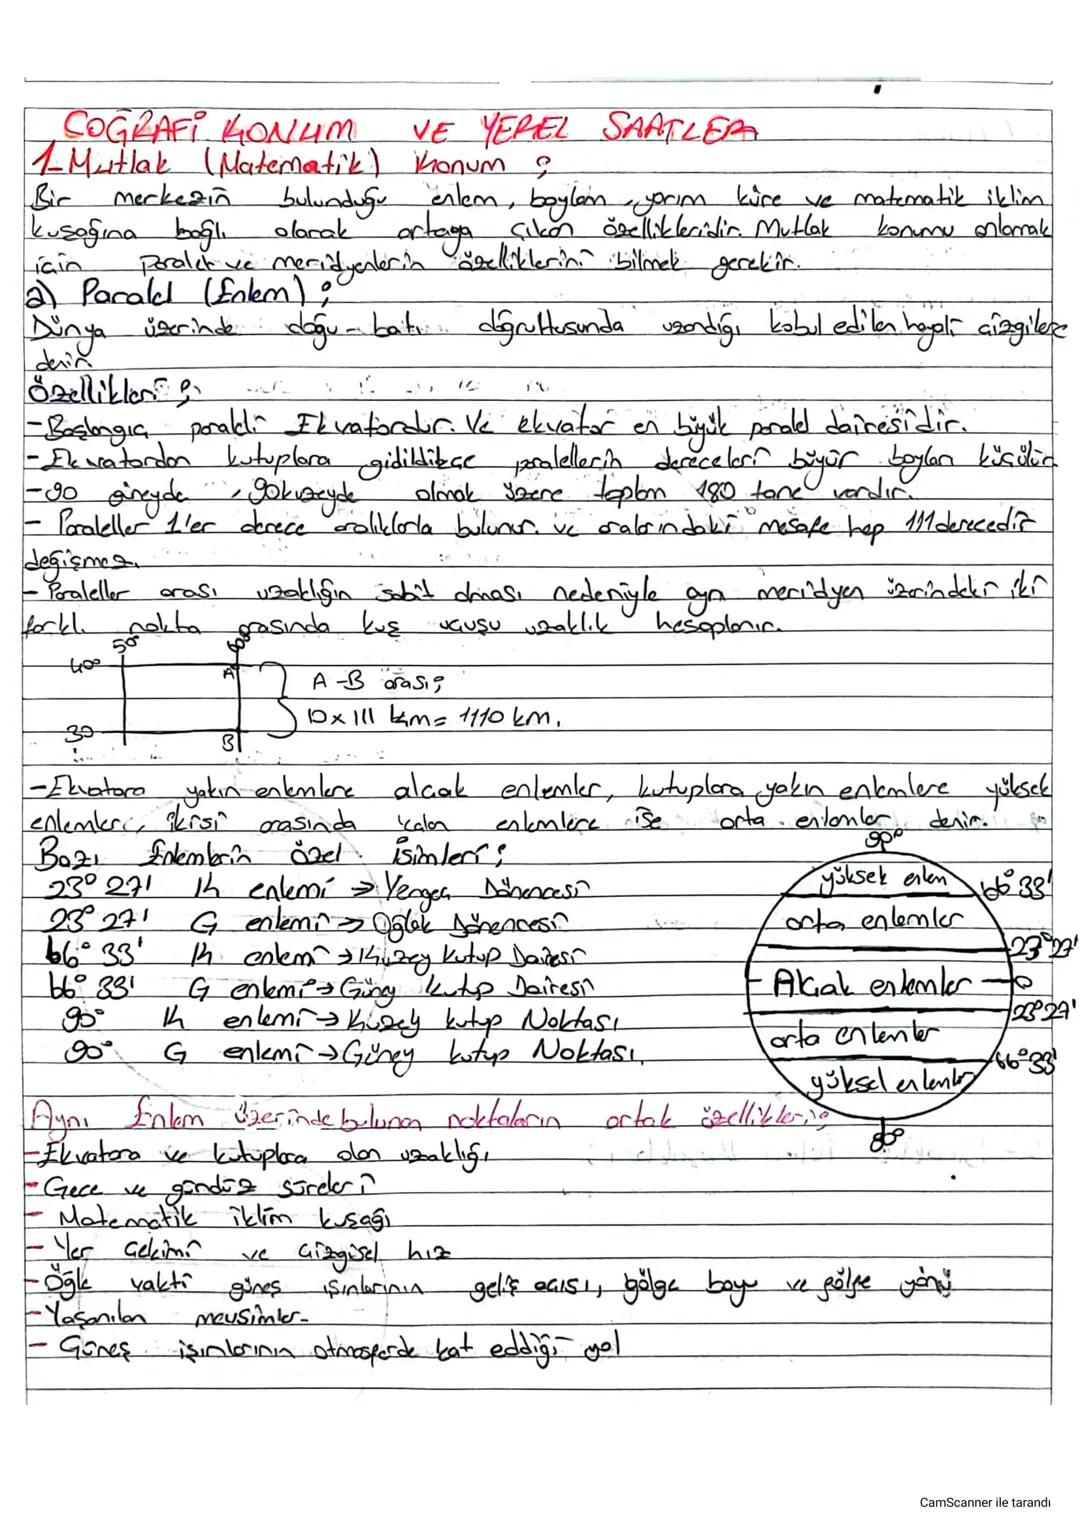 COĞRAFİ KONUM VE YEREL SAATLER
1-Mutlak (Matematik) Konum ;
Bir merkezin bulunduğu enlem, boylam, yarım küre ve matematik iklim
kuşağına bağlı olarak ortaya çıkan özelliklerdir. Mutlak konumu anlamak
için paralel ve meridyenlerin özelliklerini bilmek gerekir.
a) Paralel (Enlem) ;
Dünya üzerinde doğu-batı doğrultusunda uzandığı kabul edilen hayali çizgilere
denir.
Özellikleri ;
-Başlangıç paraleli Ekvatordur. Ve ekvator en büyük paralel dairesidir.
-Ekvatordan kutuplara gidildikçe paralellerin dereceleri büyür boyları küçülür
-90 güneyde, 90 kuzeyde olmak üzere toplam 180 tane vardır.
- Paraleller 1'er derece aralıklarla bulunur. ve aralarındaki mesafe hep 111 derecedir
değişmez.
- Paraleller arası uzaklığın sabit olması nedeniyle aynı meridyen üzerindeki iki
farklı nokta arasında kuş uçuşu uzaklık hesaplanır.
50° 60°
40° A
A-B arası;
10 x 111 km = 1110 km.
30 B
-Ekvatora yakın enlemlere alçak enlemler, kutuplara yakın enlemlere yüksek
enlemler, ikisi arasında kalan enlemlere ise orta enlemler denir.
Bazı Enlemlerin özel isimleri ;
23° 27' K enlemi → Yengeç Dönencesi
23° 27' G enlemi → Oğlak Dönencesi
66° 33' K enlemi → Kuzey Kutup Dairesi
66° 33' G enlemi → Güney Kutup Dairesi
90° K enlemi → Kuzey kutup Noktası
90° G enlemi → Güney kutup Noktası
90°
yüksek enlem 66° 33'
orta enlemler
23° 27'
Alçak enlemler 0
23° 27'
orta enlemler
66° 33'
yüksek enlemler
90°
Aynı Enlem üzerinde bulunan noktaların ortak özellikleri;
-Ekvatora ve kutuplara olan uzaklığı
-Gece ve gündüz süreleri
- Matematik iklim kuşağı
- Yer Çekimi ve Çizgisel hız
-Öğle vakti güneş ışınlarının geliş açısı, gölge boyu ve gölge yönü
-Yaşanılan mevsimler-
- Güneş ışınlarının atmosferde kat eddiği yol
CamScanner ile tarandı